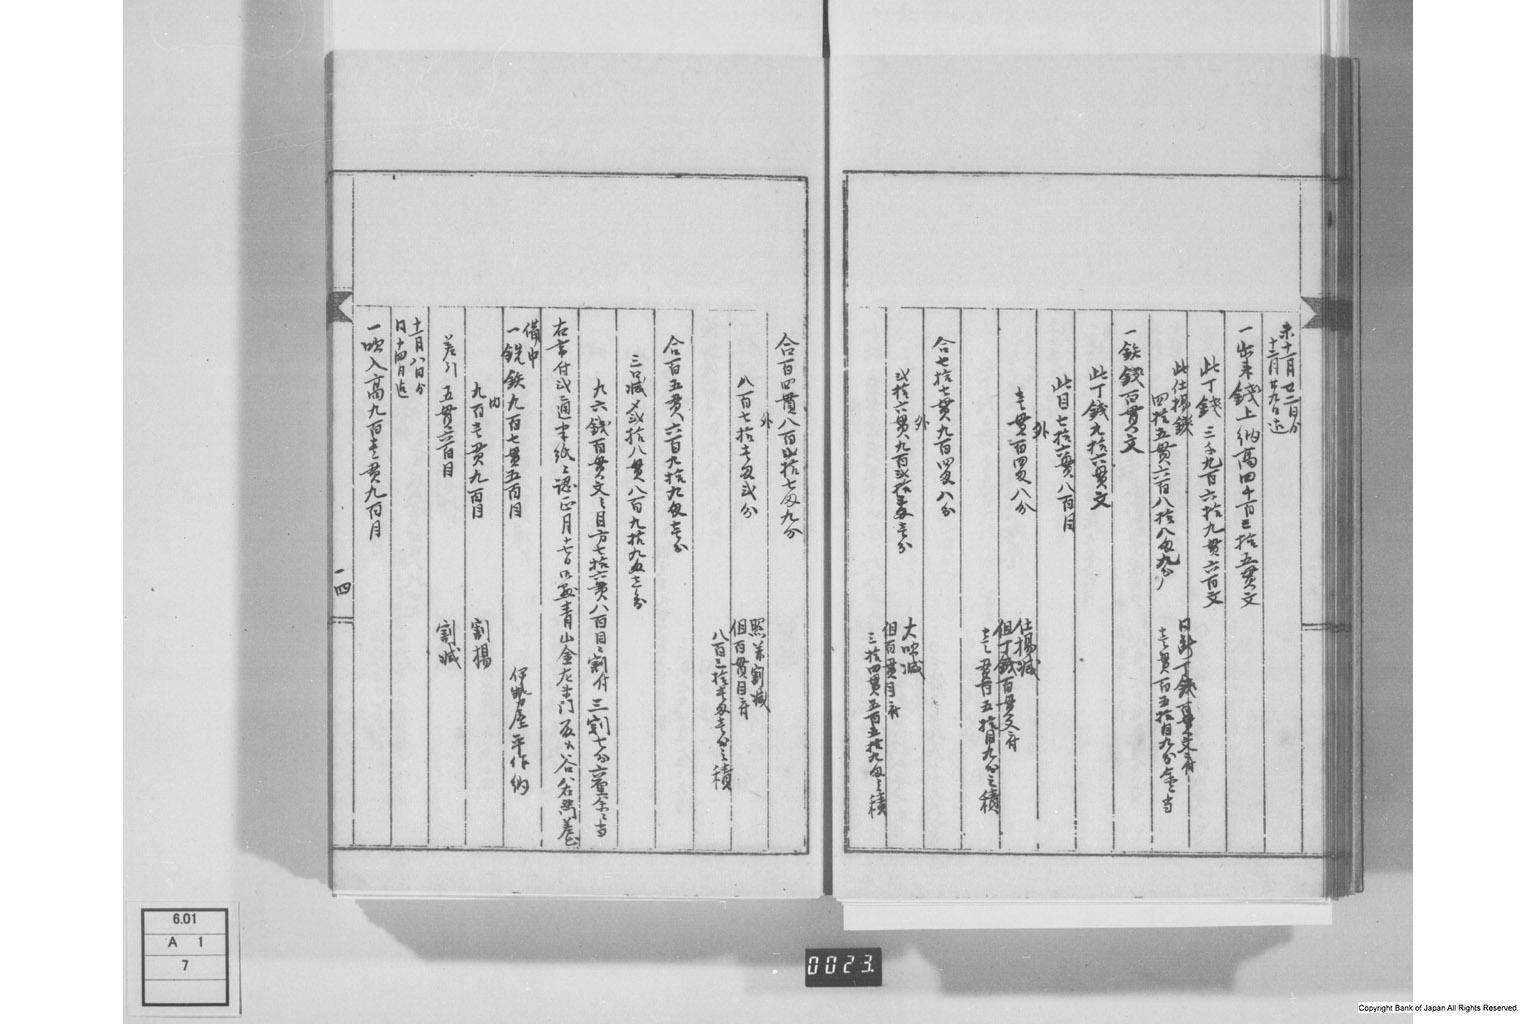 未十一月廿二日分
十二月廿九日迄
一出来銭上納高四千百三拾五貫文
此丁銭 三千九百六拾九貫六百文
此仕揚鉄
四拾五貫六百八拾八匁九分
但丁銭百貫文ニ付
壱貫百五拾目九分余ニ当
一鉄銭百貫文
此丁銭九拾六貫文
此目七拾六貫八百目
外
壱貫百四匁八分
仕揚減
但丁銭百貫文ニ付
壱貫百五拾目九分之積
合七拾七貫九百四匁八分
外
弐拾六貫九百弐拾壱匁壱分
大吹減
但百貫目ニ付
三拾四貫五百五拾九匁之積
合百四貫八百弐拾七匁九分
外
八百七拾壱匁弐分
熈業割減
但百貫目ニ付
八百三拾壱匁壱分之積
合百五貫六百九拾九匁壱分
三口減〆弐拾八貫八百九拾九匁壱分
九六銭百貫文之目方七拾六貫八百目ニ割付三割七分六厘余ニ当
右書付弐通半紙ニ認正月十七日
備中
一銑鉄九百七貫五百目
伊勢屋平作納
内
九百壱貫九百目
割揚
差引 五貫六百目
割減
十一月八日分
同十四日迄
一吹入高九百壱貫九百目
一四
6.01
A 1
7
0023.
Copyright Bank of Japan All Rights Reserved.